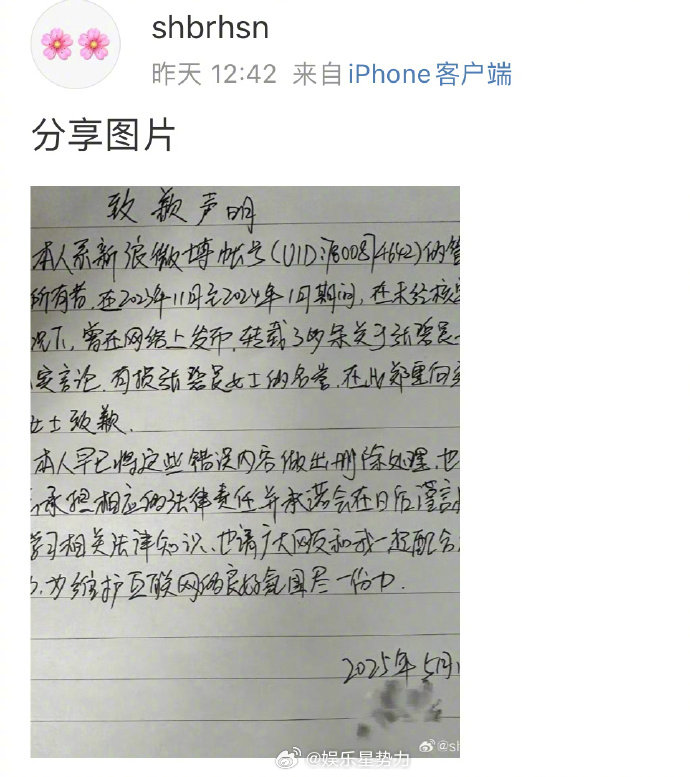 shbrhsn
昨天 12:42 来自 iPhone客户端
分享图片
致歉声明
本人系新浪微博帐号(UID:7800874642)的管
所有者,在2023年11月至2024年1月期间,在未经核实
况下,曾在网络上发布、转载了多条关于张碧晨
实言论,有损张碧晨女士的名誉,在此郑重向
女士致歉.
本人早已将这些错误内容做出删除处理,也
承担相应的法律责任并承诺会在日后谨言
学习相关法律知识、也请广大网友和我一起配合
为维护互联网的良好氛围尽一份力.
2025年5月
@sh
@娱乐星势力